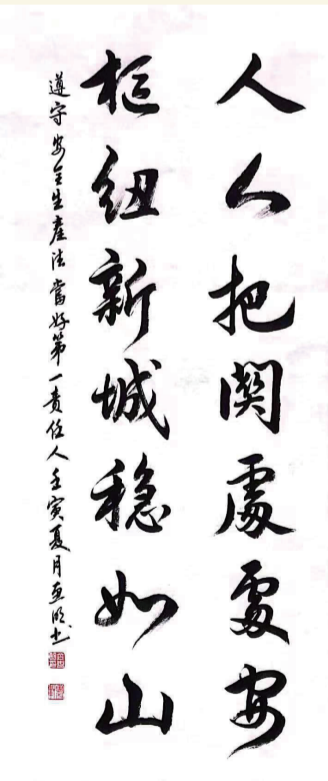 人人把関處處安
枢纽新城稳如山
遵守安全生産法當好第一责任人壬寅夏月